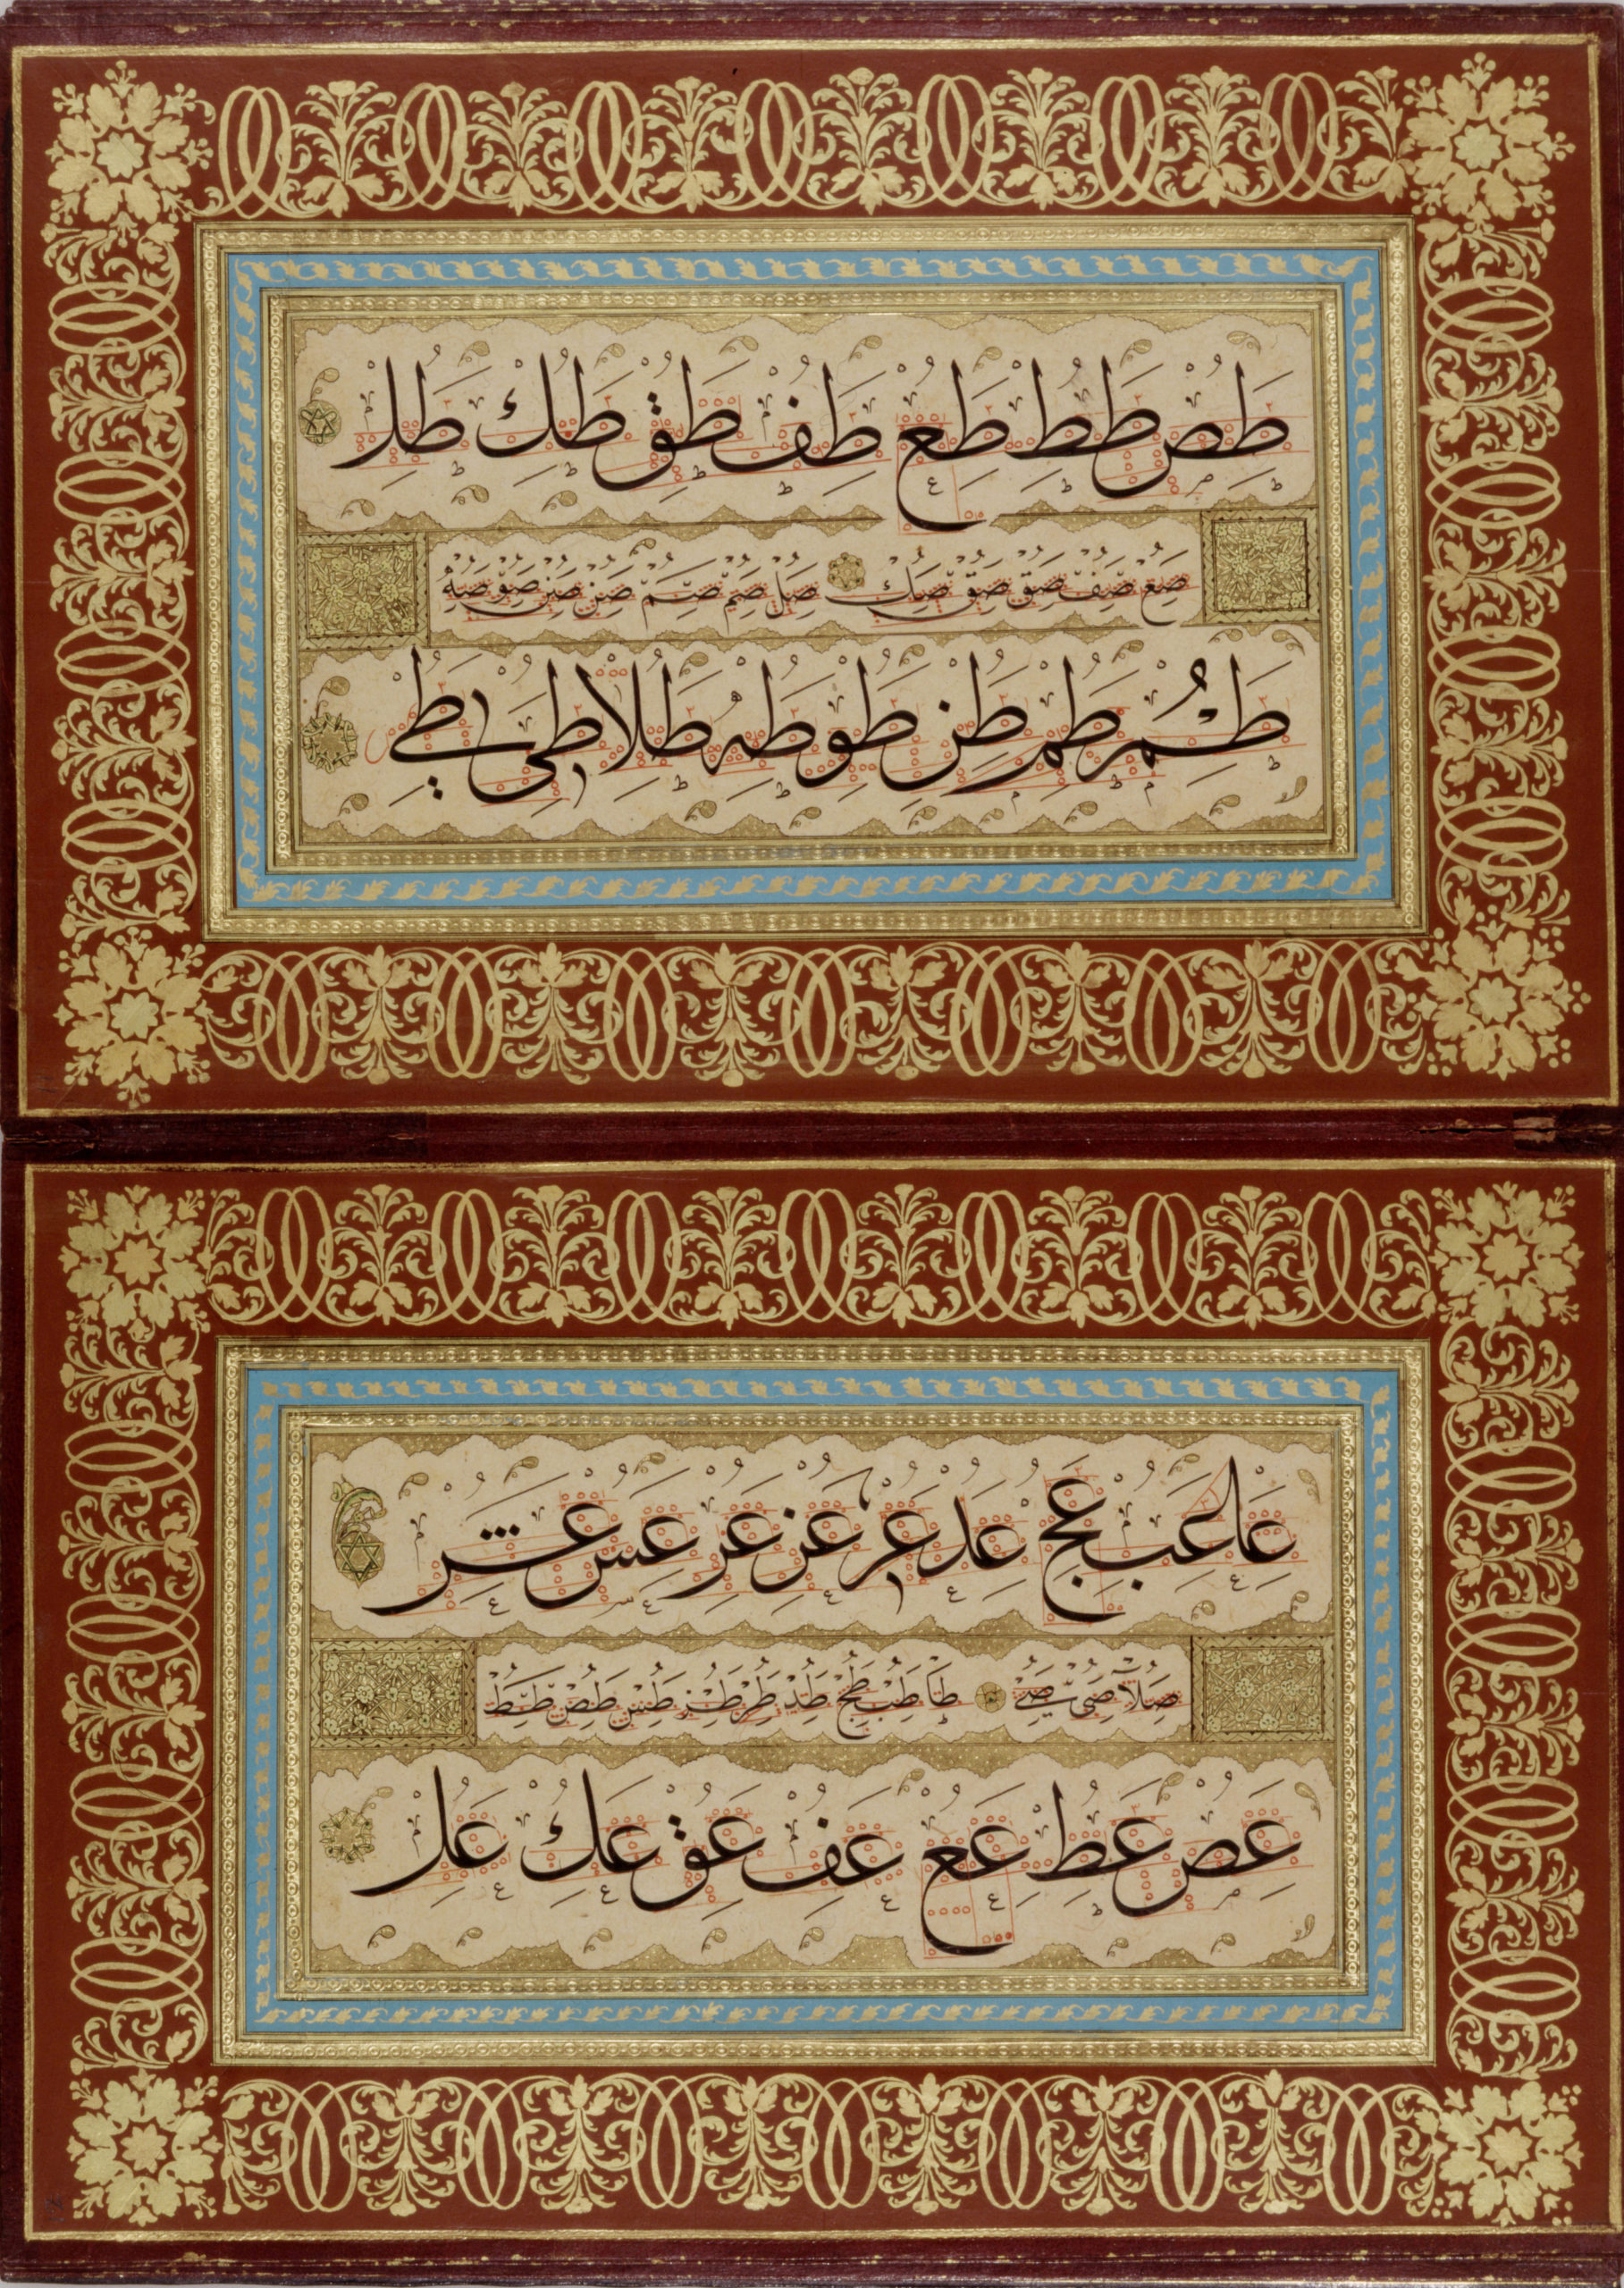 طص طط طع طف طق طك طل
صع صف صق صق صك صل صم صم صن صن صو صه
طم طم طن طو طه طلا طى طي
عا عب عج عد عر عز عر عس عش
صلا صى صي طا طب طج طد طر طر طس طص طط
عص عط عع عف عق عك عل